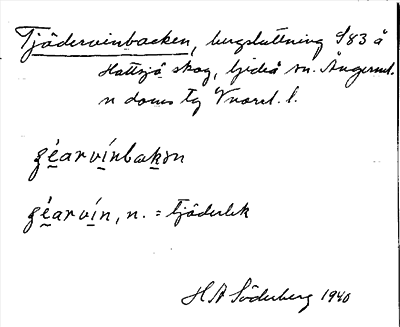 Tjädervinbacken, bergsluttning S83 å
Hattsjö skog, Liden sn. Ångerml.
n doms Tg Vnorrl. l.
géarvínbakən
géarvín, n. = tjäderlek
H A Söderberg 1940